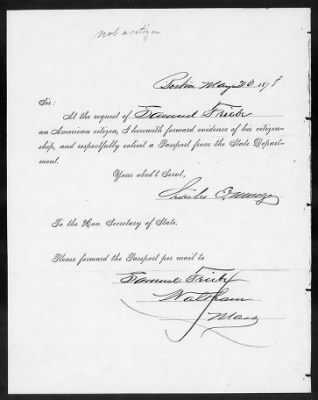 not a citizen
Boston May 20 187
Sir:
At the request of Samuel
an American citizen, I herewith forward evidence of his citizen-
ship, and respectfully solicit a Passport from the State Depart-
ment.
Your obed't Servt,
Charles
To the Hon. Secretary of State.
Please forward the Passport per mail to
Samuel
Waltham
Mass